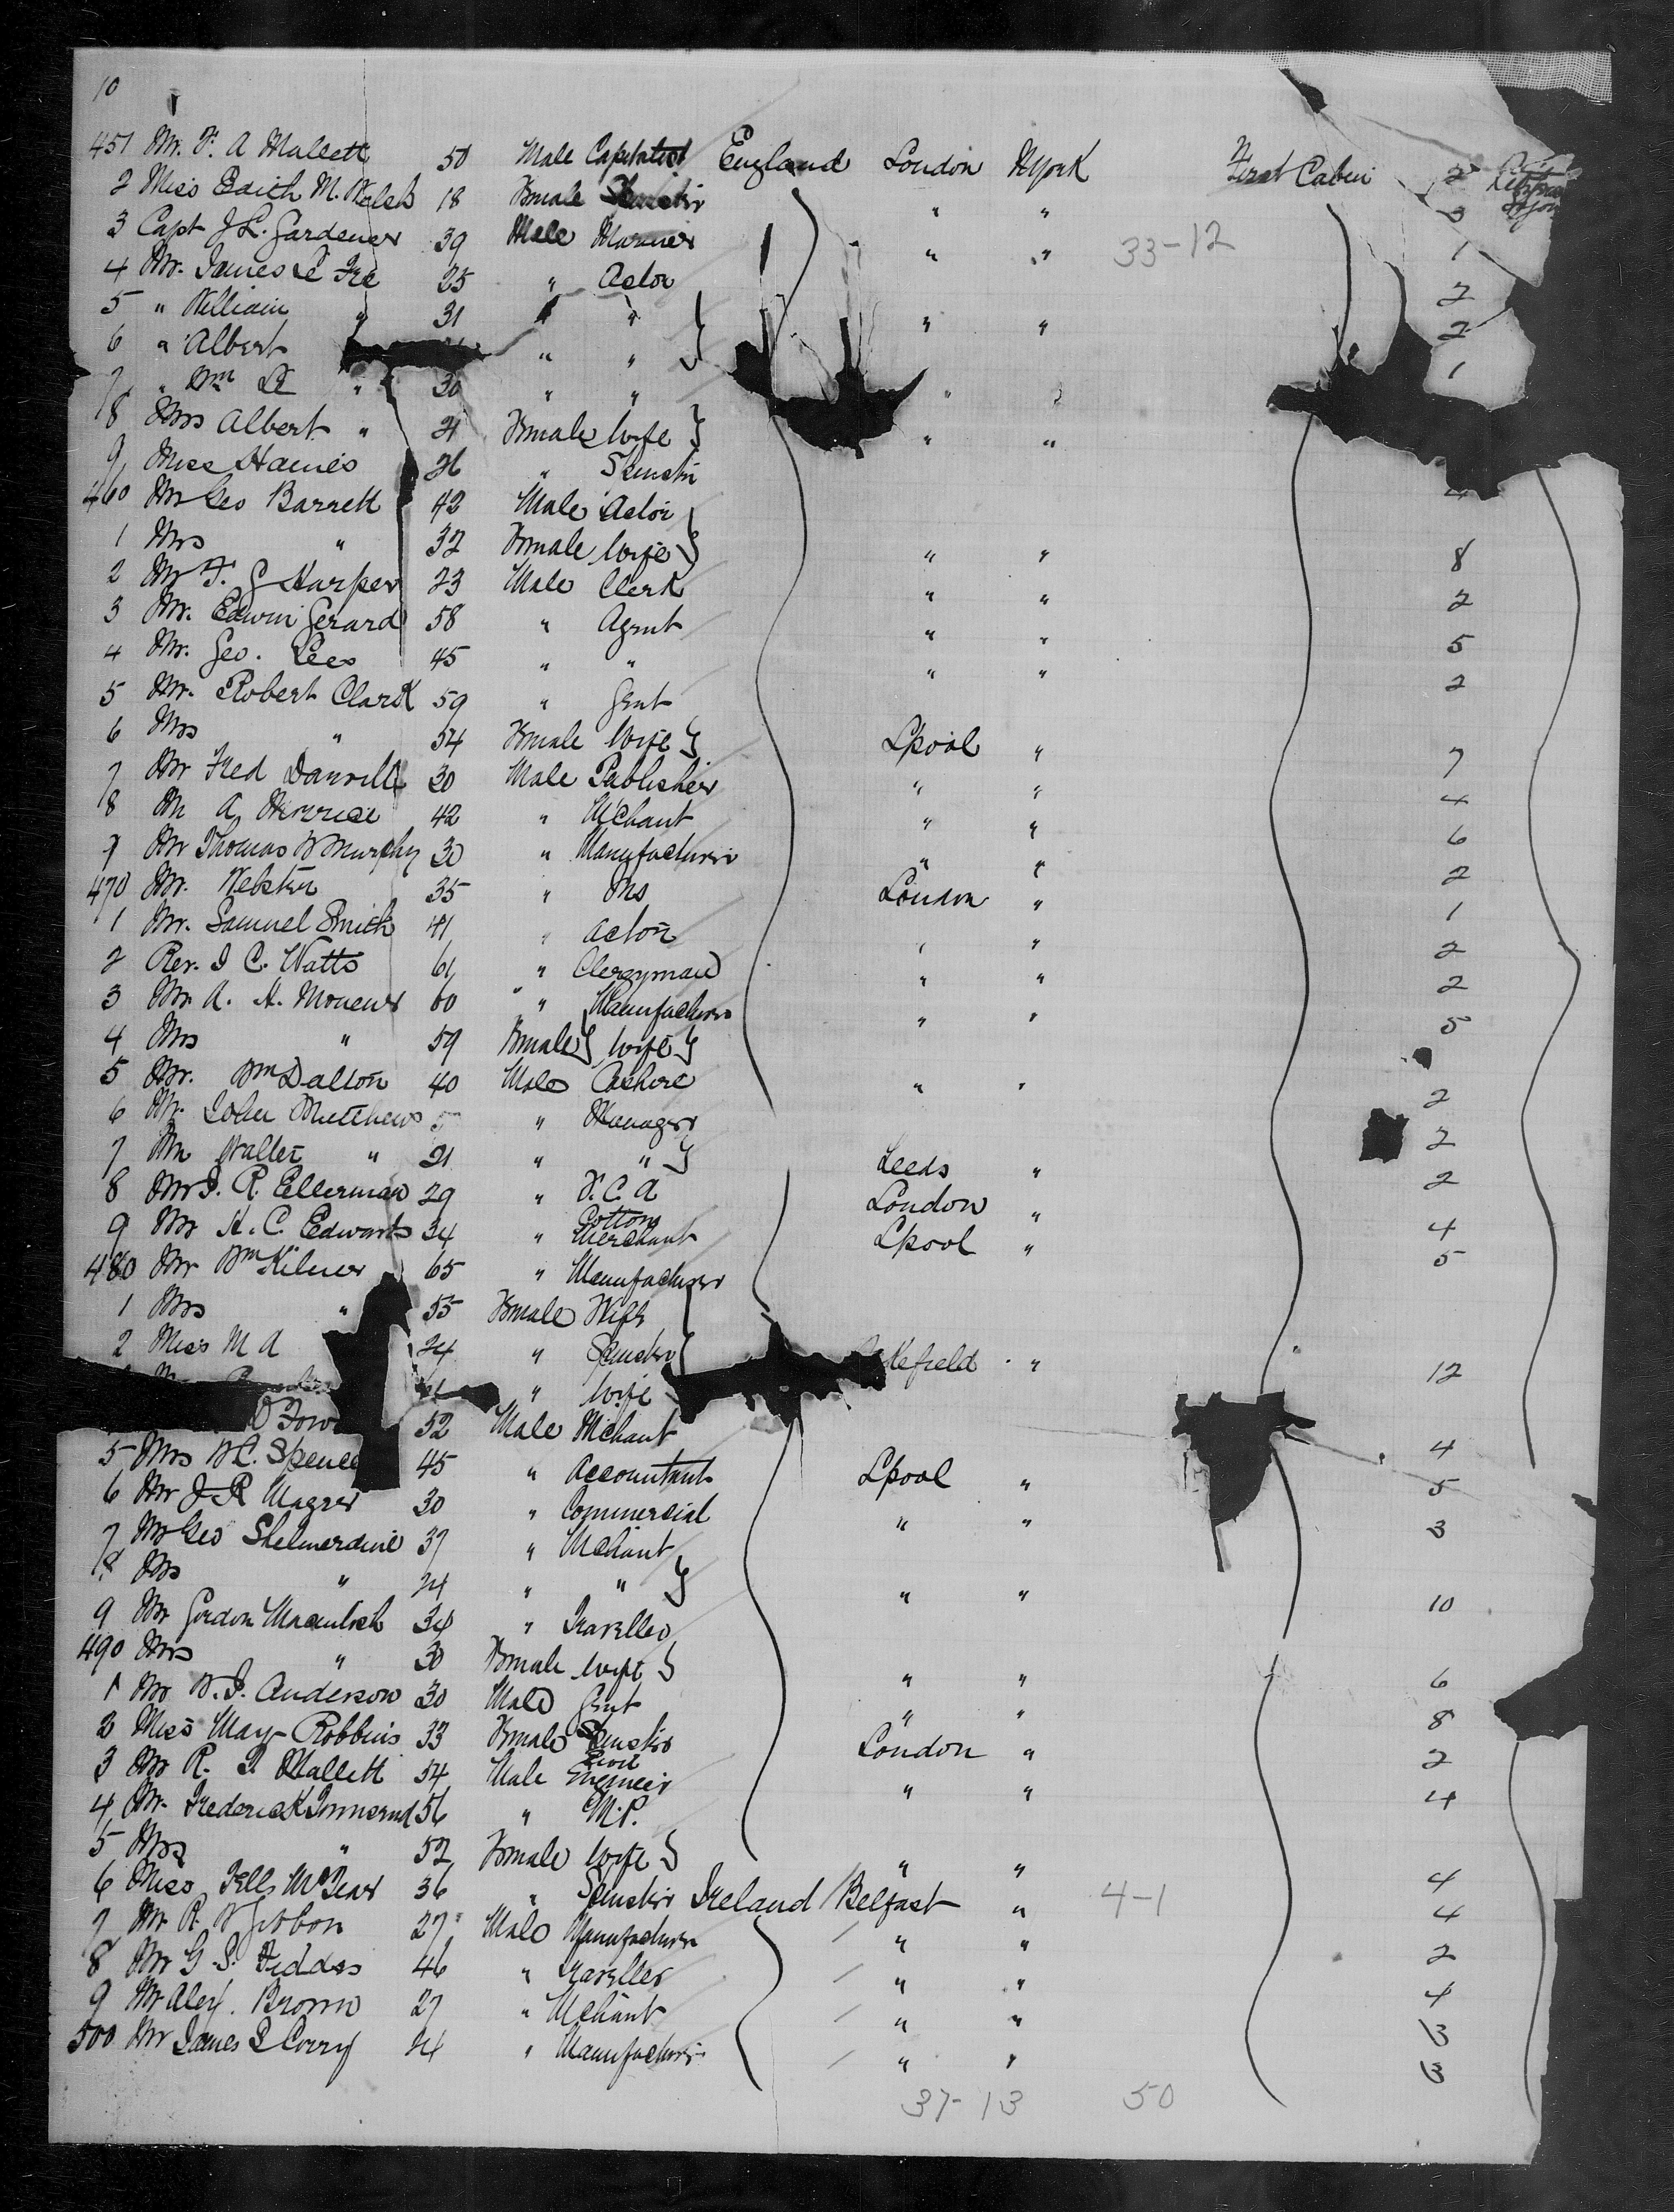 10
451 Mr. F. A Mallett 50 Male Capitalist England London N York First Cabin 2
2 Miss Edith M. Welsh 18 Female Spinster " " 3
3 Capt J L. Gardener 39 Male Mariner " " 33-12 1
4 Mr. James Le Fre 25 " Actor 2
5 " William " 31 " " " " 2
6 " Albert " " 1
7 " Wm Le " 30 " " "
8 Mrs Albert " 21 Female Wife " "
9 Miss Haines 26 " Spinster
460 Mr Geo Barrett 42 Male Actor 4
1 Mrs " 32 Female Wife " " 8
2 Mr F. G Harper 23 Male Clerk " " 2
3 Mr. Edwin Gerard 58 " Agent " " 5
4 Mr. Geo. Lees 45 " " " " 2
5 Mr. Robert Clark 59 " Gent
6 Mrs " 54 Female Wife Lpool " 7
7 Mr Fred Danvill 30 Male Publisher " " 4
8 M A 42 " Mchant " " 6
9 Mr Thomas W Murphy 30 " Manufacturer " " 2
470 Mr. Webster 35 " London " 1
1 Mr. Samuel Smith 41 " Actor " " 2
2 Rev. J C. Watts 61 " Clergyman " " 2
3 Mr A. H. 60 " Manufacturer " " 5
4 Mrs " 59 Female Wife
5 Mr. Wm Dalton 40 Male " " 2
6 Mr. John Mutthews 5 " Manager 2
7 Mr Walter " 21 " " Leeds " 2
8 Mr J. R. Ellerman 29 " F. C. A London " 4
9 Mr H. C. Edwards 34 " Cotton Merchant Lpool " 5
480 Mr Wm Kilner 65 " Manufacturer
1 Mrs " 55 Female Wife
2 Miss M A 24 " Spinster kefield " 12
" Wife
52 Male Mchant 4
5 Mrs W C. Spence 45 " Accountant Lpool " 5
6 Mr J R Wagner 30 " Commercial " " 3
7 Mr Geo Shelmerdine 37 " Mchant
8 Mrs " 24 " " " " 10
9 Mr Gordon Macintosh 34 " Traveller
490 Mrs " 30 Female Wife " " 6
1 Mr W. J. Anderson 30 Male Gent " " 8
2 Miss May Robbins 33 Female Spinster London " 2
3 Mr R. T. Mallett 54 Male Civil Engineer " " 4
4 Mr. Frederick 56 " M.P.
5 Mrs " 52 Female Wife " " 4
6 Miss McTear 36 " Spinster Ireland Belfast " 4-1 4
7 Mr R. W Gibbon 27 Male Manufacturer " " 2
8 Mr G. S. Feddes 46 " Traveller " " 4
9 Mr Alex. Brown 27 " Mchant " " 3
500 Mr James L Corry 24 " Manufacturer " " 3
37-13 50